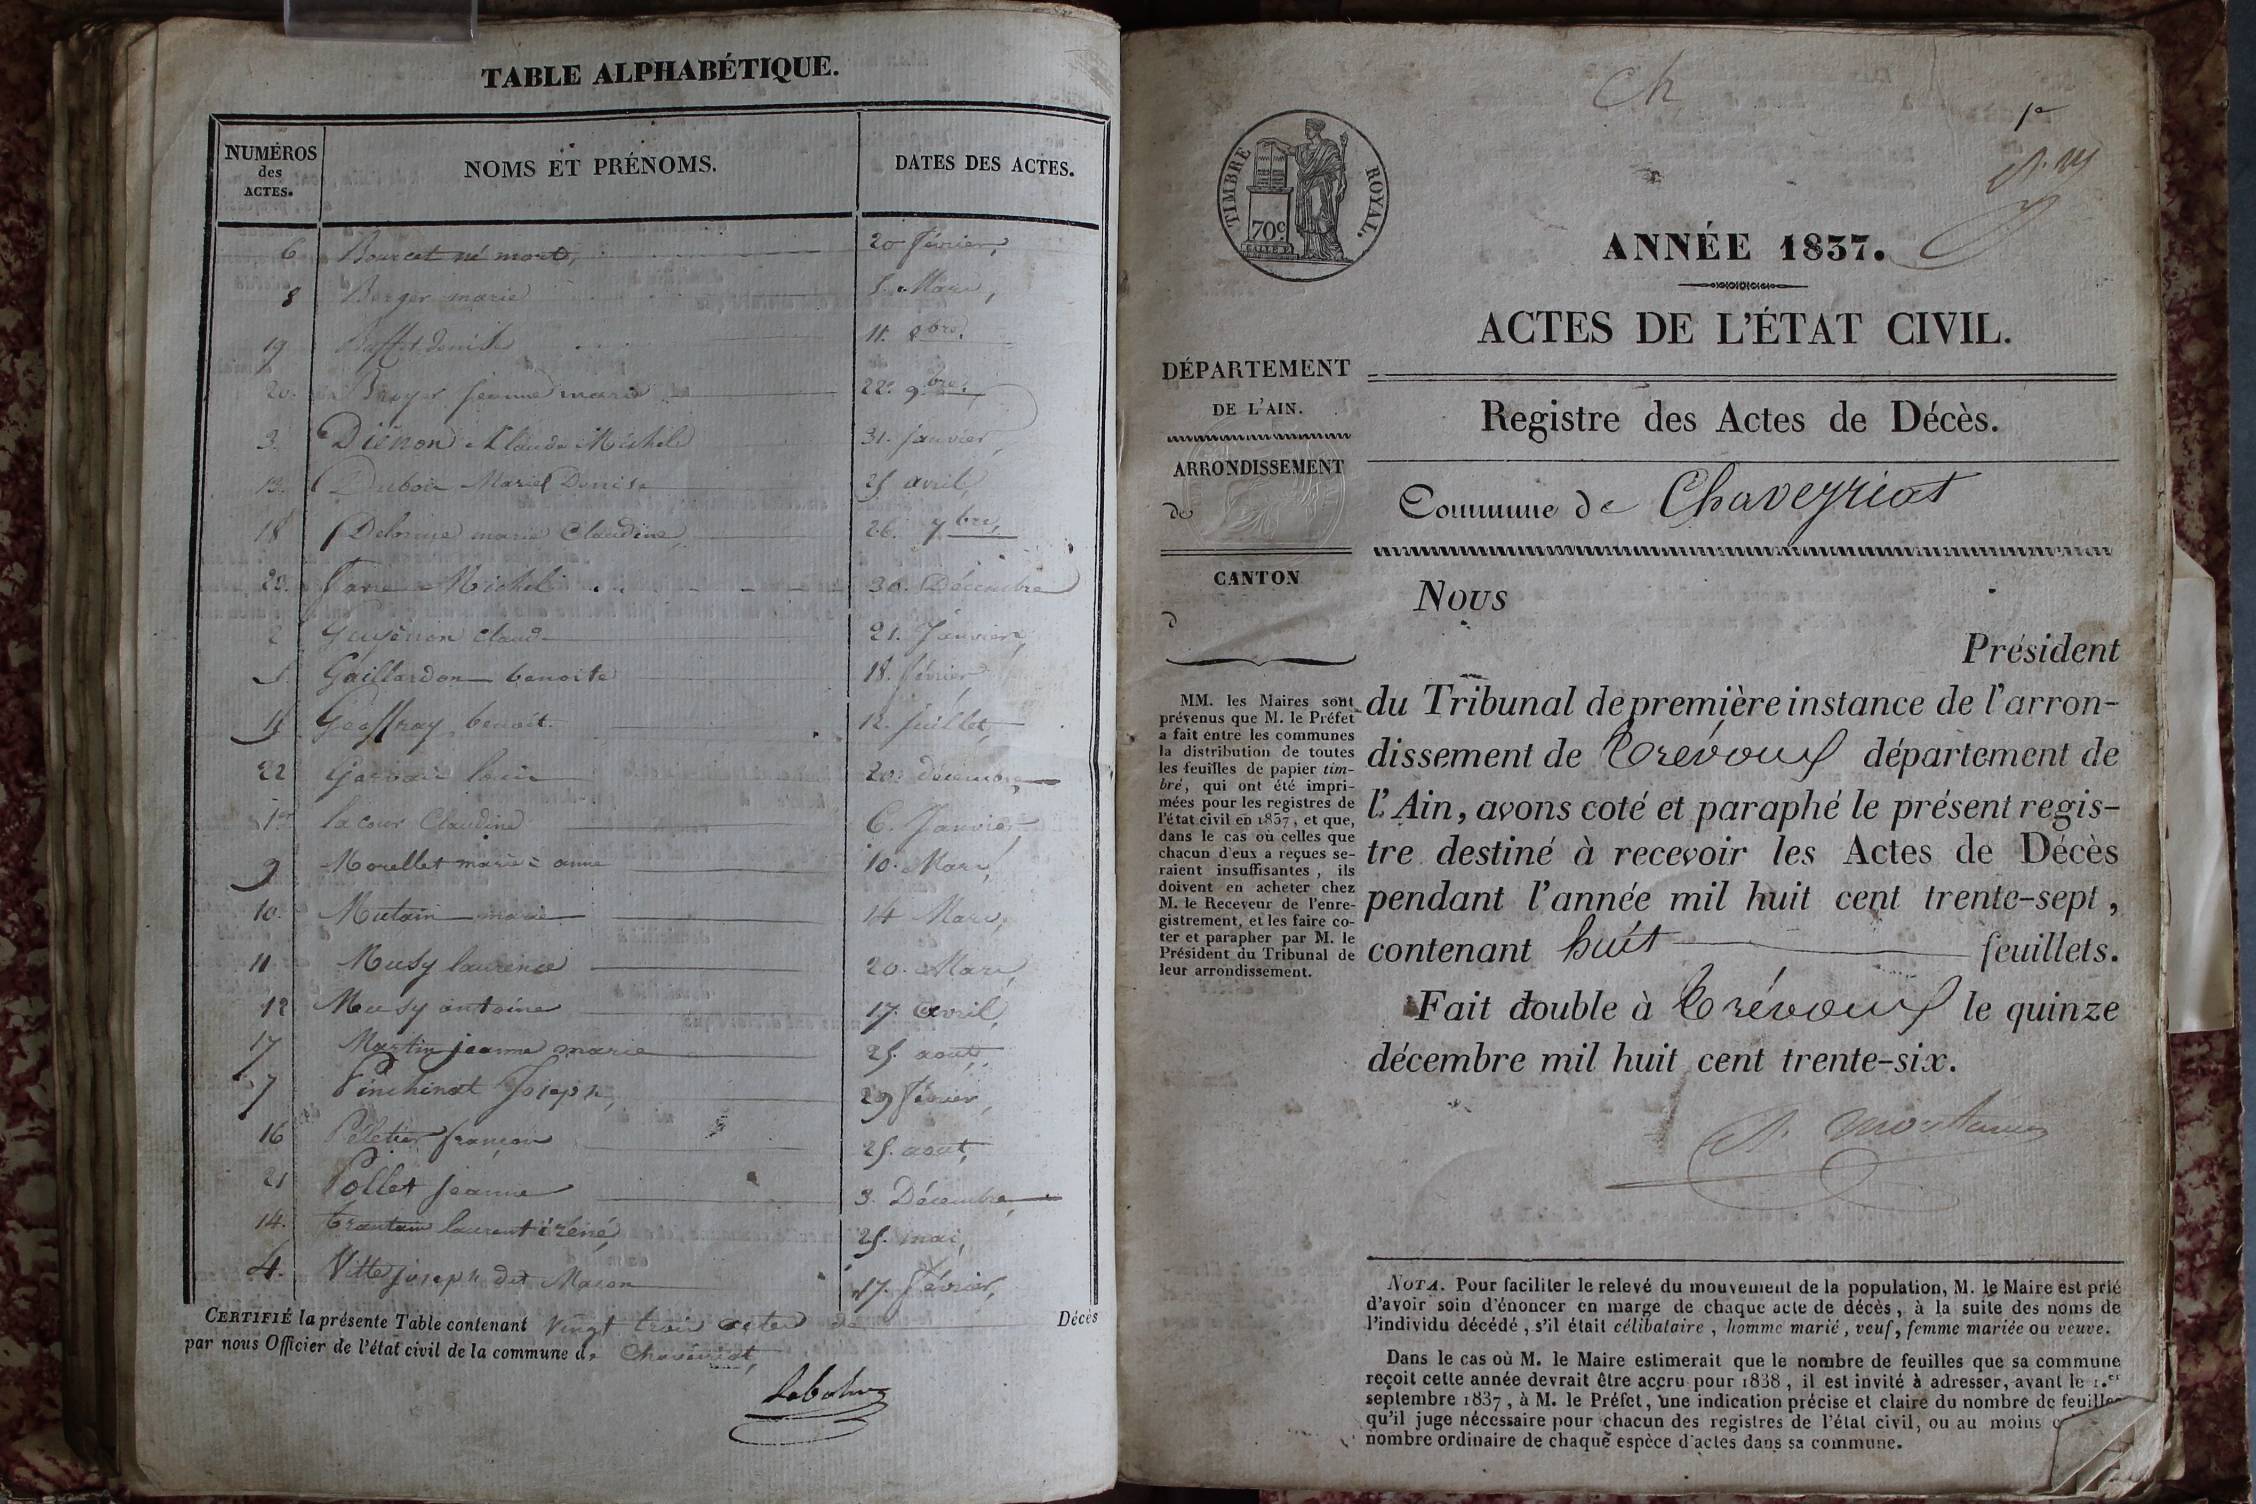 TABLE ALPHABÉTIQUE.
NUMÉROS des ACTES. NOMS ET PRÉNOMS. DATES DES ACTES.
6 Bourcet né mort, 20 février,
8 Berger marie 5. Mars,
19 Buffet denise 11. 8bre.
20. Broyer jeanne marie 22. 9bre.
3. Diénon Claude Michel 31. janvier,
13. Dubois Marie Denise 25 avril,
18 Delorme marie Claudine, 26. 7bre,
23. Michel 30. Décembre
2 Guyénon claude 21. Janvier,
5. Gaillardon benoite 18. février
15 Geoffray benoit 12. juillet,
22 louis 20. décembre,
1er lacour Claudine 6. Janvier
9 Morellet marie anne 10. Mars,
10. Mutain marie 14 Mars,
11 Musy laurence 20. Mars,
12 Musy antoine 17. avril,
17 Martin jeanne marie 25. aout,
7 Pinchinat Joseph, 29 février,
16 Peletier françois 25. aout,
21 Pollet jeanne 3. Décembre,
14. laurent iréné, 25. mai,
4. Vitte joseph dit Macon 17. février,
CERTIFIÉ la présente Table contenant vingt trois actes de Décès
par nous Officier de l'état civil de la commune de Chavériat,
Ch
TIMBRE ROYAL.
70c
ANNÉE 1837.
ACTES DE L'ÉTAT CIVIL.
DÉPARTEMENT
DE L'AIN.
ARRONDISSEMENT
de
CANTON
d
MM. les Maires sont
prévenus que M. le Préfet
a fait entre les communes
la distribution de toutes
les feuilles de papier tim-
bré, qui ont été impri-
mées pour les registres de
l'état civil en 1837, et que,
dans le cas où celles que
chacun d'eux a reçues se-
raient insuffisantes, ils
doivent en acheter chez
M. le Receveur de l'enre-
gistrement, et les faire co-
ter et parapher par M. le
Président du Tribunal de
leur arrondissement.
Registre des Actes de Décès.
Commune de Chaveyriat
Nous
Président
du Tribunal de première instance de l'arron-
dissement de Trévoux département de
l'Ain, avons coté et paraphé le présent regis-
tre destiné à recevoir les Actes de Décès
pendant l'année mil huit cent trente-sept,
contenant huit feuillets.
Fait double à Trévoux le quinze
décembre mil huit cent trente-six.
NOTA. Pour faciliter le relevé du mouvement de la population, M. le Maire est prié
d'avoir soin d'énoncer en marge de chaque acte de décès, à la suite des noms de
l'individu décédé, s'il était célibataire, homme marié, veuf, femme mariée ou veuve.
Dans le cas où M. le Maire estimerait que le nombre de feuilles que sa commune
reçoit cette année devrait être accru pour 1838, il est invité à adresser, avant le 1.er
septembre 1837, à M. le Préfet, une indication précise et claire du nombre de feuilles
qu'il juge nécessaire pour chacun des registres de l'état civil, ou au moins
nombre ordinaire de chaque espèce d'actes dans sa commune.